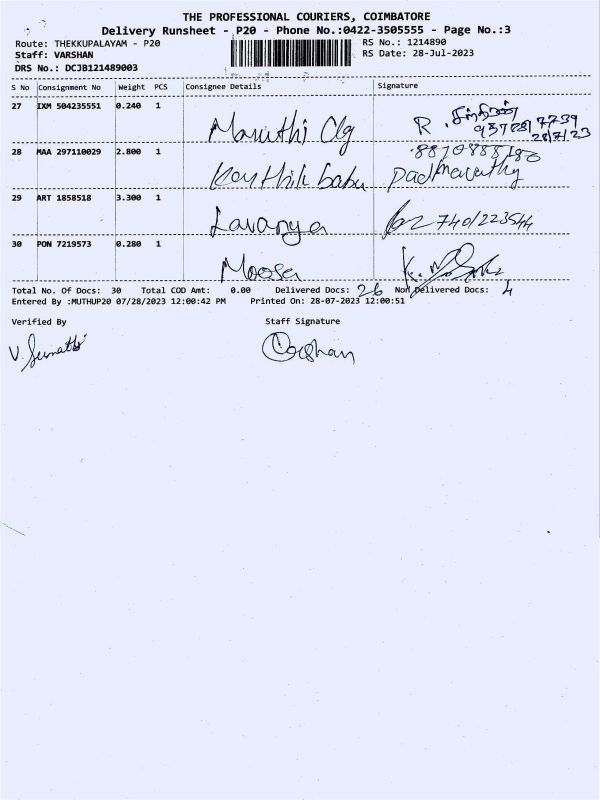 THE PROFESSIONAL COURIERS, COIMBATORE
Delivery Runsheet - P20 - Phone No.:0422-3505555 - Page No.:3
Route: THEKKUPALAYAM - P20 RS No.: 1214890
Staff: VARSHAN RS Date: 28-Jul-2023
DRS No.: DCJB121489003
S No Consignment No Weight PCS Consignee Details Signature
27 IXM 504235551 0.240 1 Maruthi Clg R.
28/7/23
28 MAA 297110029 2.800 1 Kauthik babu Padmavathy
29 ART 1858518 3.300 1 Lavanya 7401223544
30 PON 7219573 0.280 1 Moosa
Total No. Of Docs: 30 Total COD Amt: 0.00 Delivered Docs: 26 Non Delivered Docs: 4
Entered By :MUTHUP20 07/28/2023 12:00:42 PM Printed On: 28-07-2023 12:00:51
Verified By Staff Signature
V. Sumathi Varshan